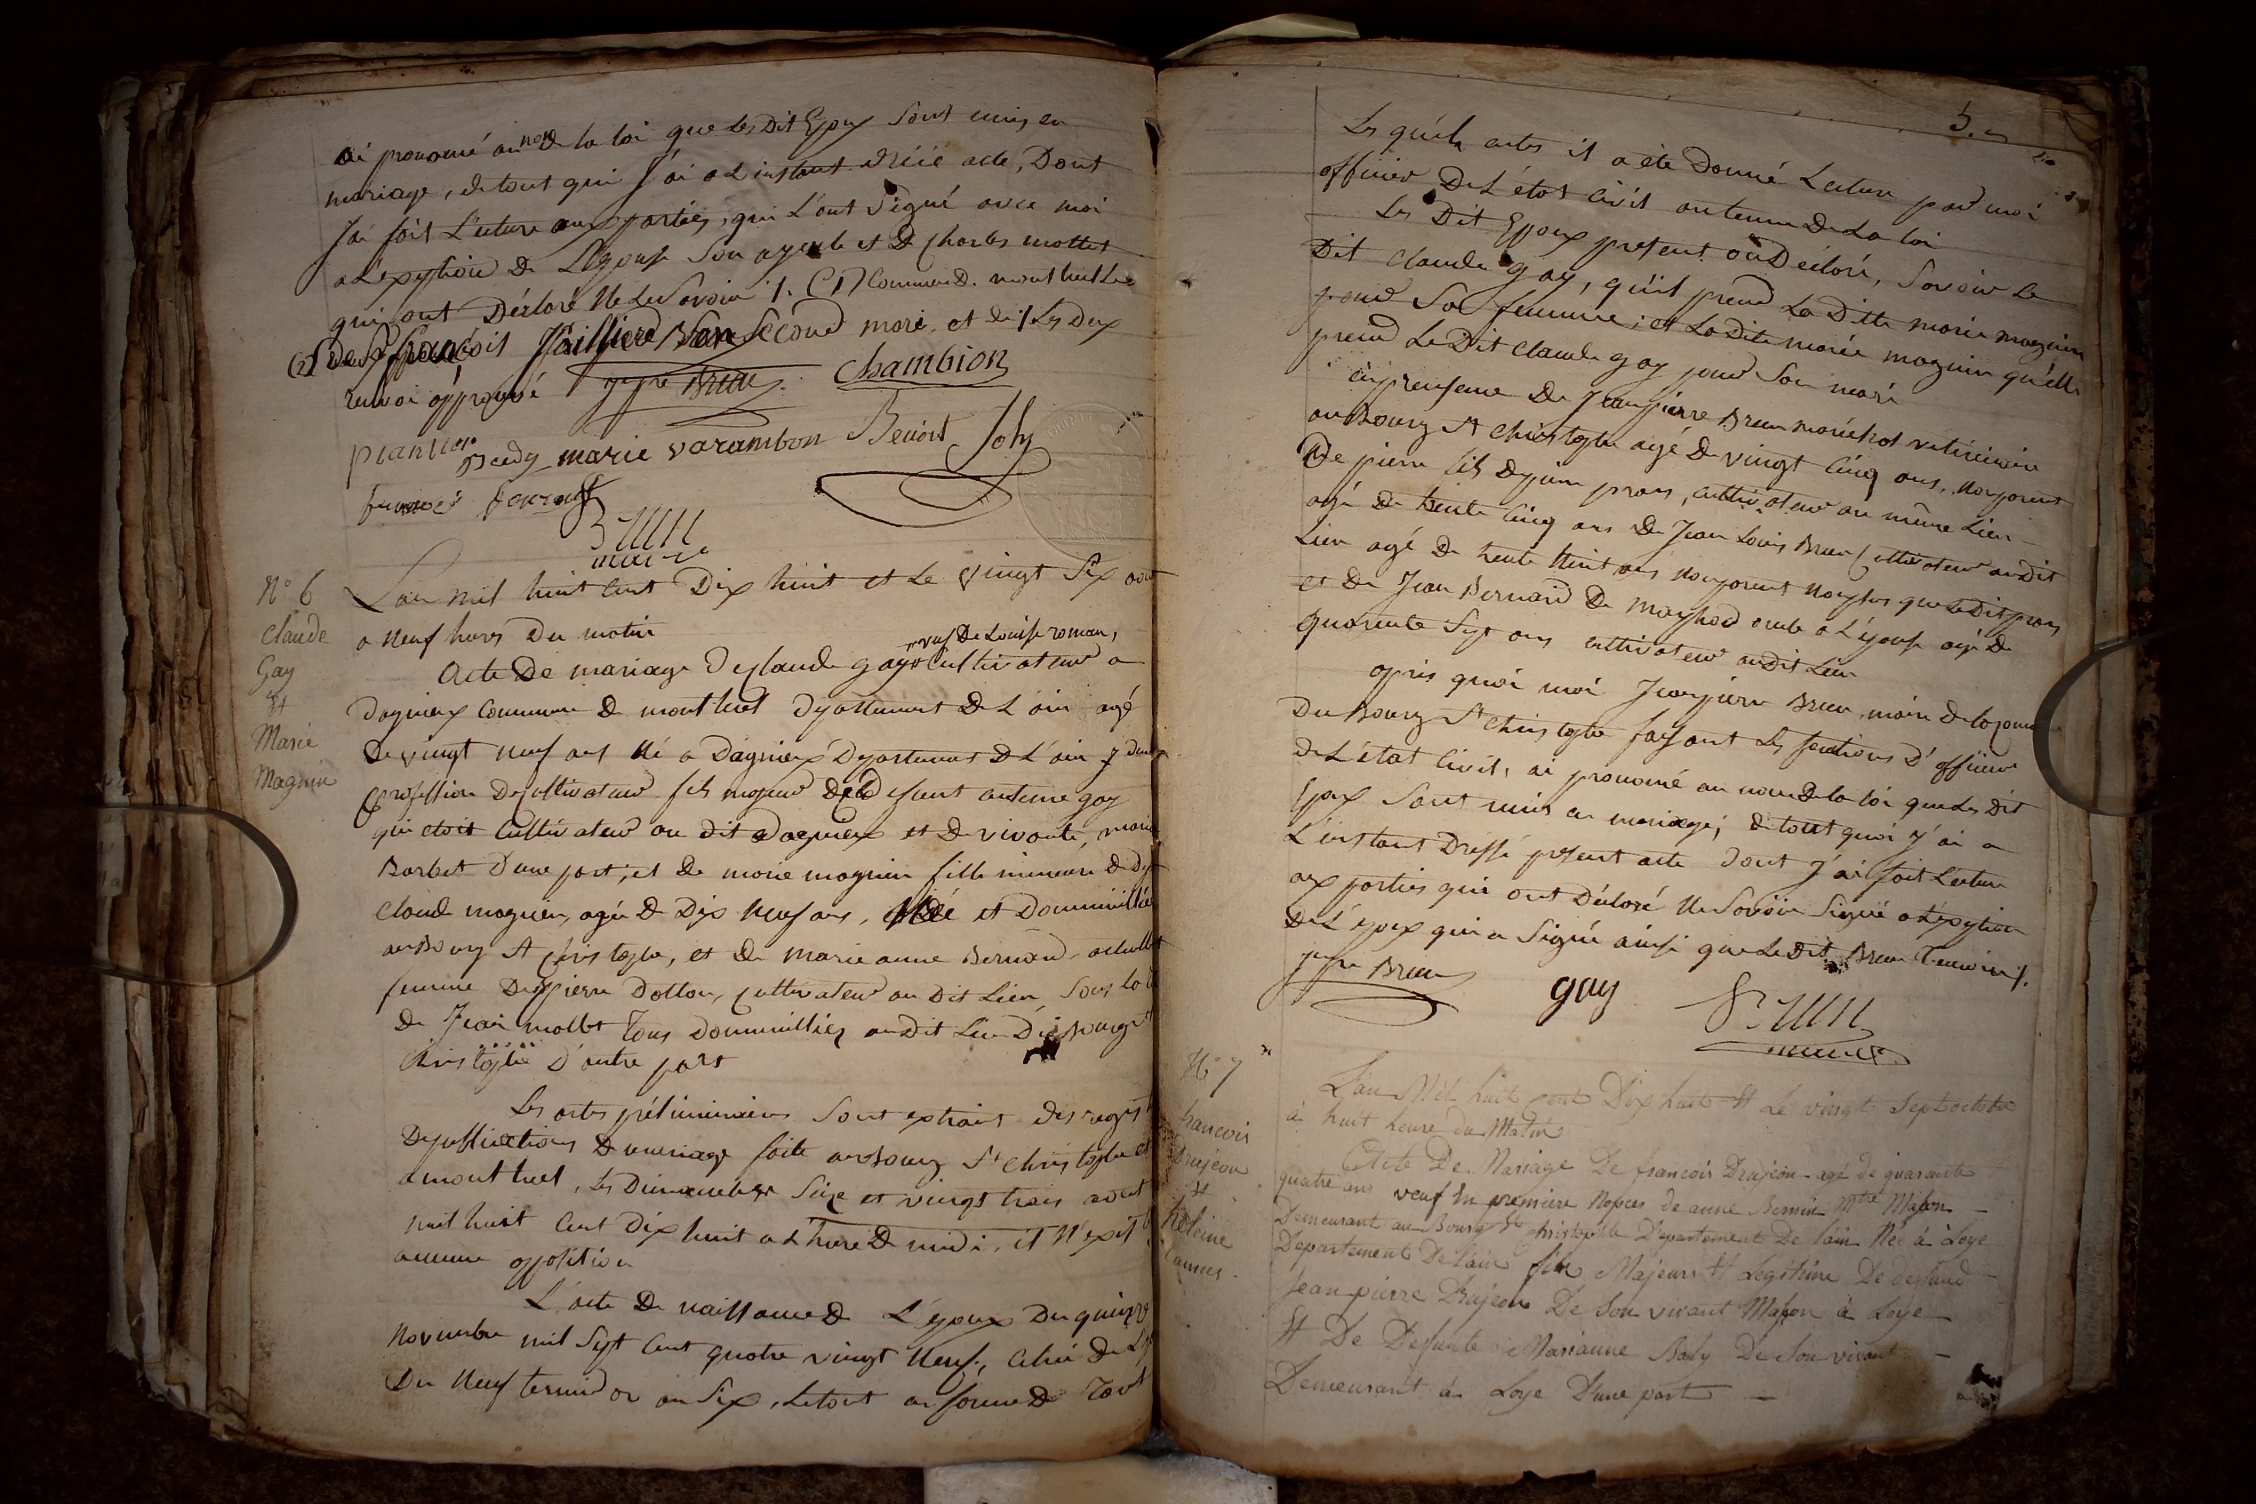 ai prononcé au nom de la loi que les dit Epoux sont unis en
mariage, de tout qui j'ai a l'instant dréssé acte, Dont
J'ai fait Lecture aux parties, qui L'ont Signé avec moi
a L'exeption de L'Epouse Son ayeule et de Charles mollet
qui ont Déclaré Ne le Savoir /.
françois Vailliere Son Sécond mari, et de /. Les Deux
renvoi approuvé jpre Breu Chambion
plantier Baudy marie varambon Benoit Joly
maire
N° 6
Claude
Gay
Et
Marie
Magnin
L'an mil huit cent Dix huit et le vingt Six aout
a Neuf heures Du matin
veuf De Louise roman,
Acte De mariage De Claude gay Cultivateur a
Dagnieux Commune de montluel Departement De L'ain agé
De vingt neuf ans Né a Dagnieux Departement de L'ain y dem
Profession De cultivateur fils majeur De Defeunt antoine gay
qui etoit Cultivateur au dit Dagnieux et de vivante, marie
Barbet D'une part, et de marie magnin fille mineure de Deft
Claude magnin, agée de Dix Neuf ans, Née et Dommiliée
au Bourg St Christophe, et de Marie anne Bernard actuellet
femme De pierre Dollon, Cultivateur au Dit Lieu, Sous la
de Jean mollet Tous Dommilliés au dit Lieu De Bourg St
Christophe D'autre part
Les actes préliminaires Sont extrait Des regist
De publications De mariage faite au Bourg St Christophe et
a montluel, les Dimanches Seize et vingt trois aout
mil huit Cent Dix huit a L'heure de midi, il N'exit
aucune oppotition
L'acte de naissance de L'époux Du quinze
Novembre mil Sept Cent quatre vingt Neuf, Celui de L'Ep
Du Neuf termidor an Six, Le tout en forme de Tout
5.
Les quels actes il a été Donné Lecture par moi
officier De L'état Civil au terme de La loi
Les Dit Epoux présent on Déclaré, Savoir Le
Dit Claude gay, qu'il prend La Ditte marie magnin
pour Sa femme; et La Dite marie magnin qu'elle
prend Le Dit Claude gay pour Son mari
en presence De Jean pierre Breu maréchal veterinaire
au Bourg St Christophe agé De vingt Cinq ans, Non parent
De pierre fils de pierre prars, cultivateur au même Lieu
agé De trente Cinq ans De Jean Louis Breu Cultivateur au dit
Lieu agé De trente huit ans Non parent Non plus que Le Dit prars
et De Jean Bernard De oncle a L'épouse agé De
quarente Sept ans cultivateur au dit Lieu
après quoi moi Jean pierre Breu maire de la Comm
Du Bourg St Christophe faisant Les fonctions D'officier
de L'état Civil, ai prononcé au nom de la loi que Les dit
Epoux Sont unis en mariage; de tout quoi j'ai a
L'instant Dressé présent acte Dont j'ai fait Lecture
aux parties qui ont Déclaré Ne Savoir Signé a L'exeption
De L'époux qui a Signé ainsi que Le Dit Breu Temoin /.
jpre Breu gay
maire
N° 7
francois
Drujeon
Et
héleine
L'an Mil huit cent Dix huit Et Le vingt Sept octobre
à huit heure du Matin
Acte De Mariage De francois Drujeon agé de quarante
quatre ans veuf En première Nopces de anne Bernin Mtre Mason
Demeurant au Bourg St christophle Departement De l'ain Né à Loye
Departement De l'ain fils Majeurs Et Legitime De defund
Jean pierre Drujeon De Son vivant Mason à Loye
Et De Defunte Marianne Baly De Son vivant
Demeurant à Loye D'une part